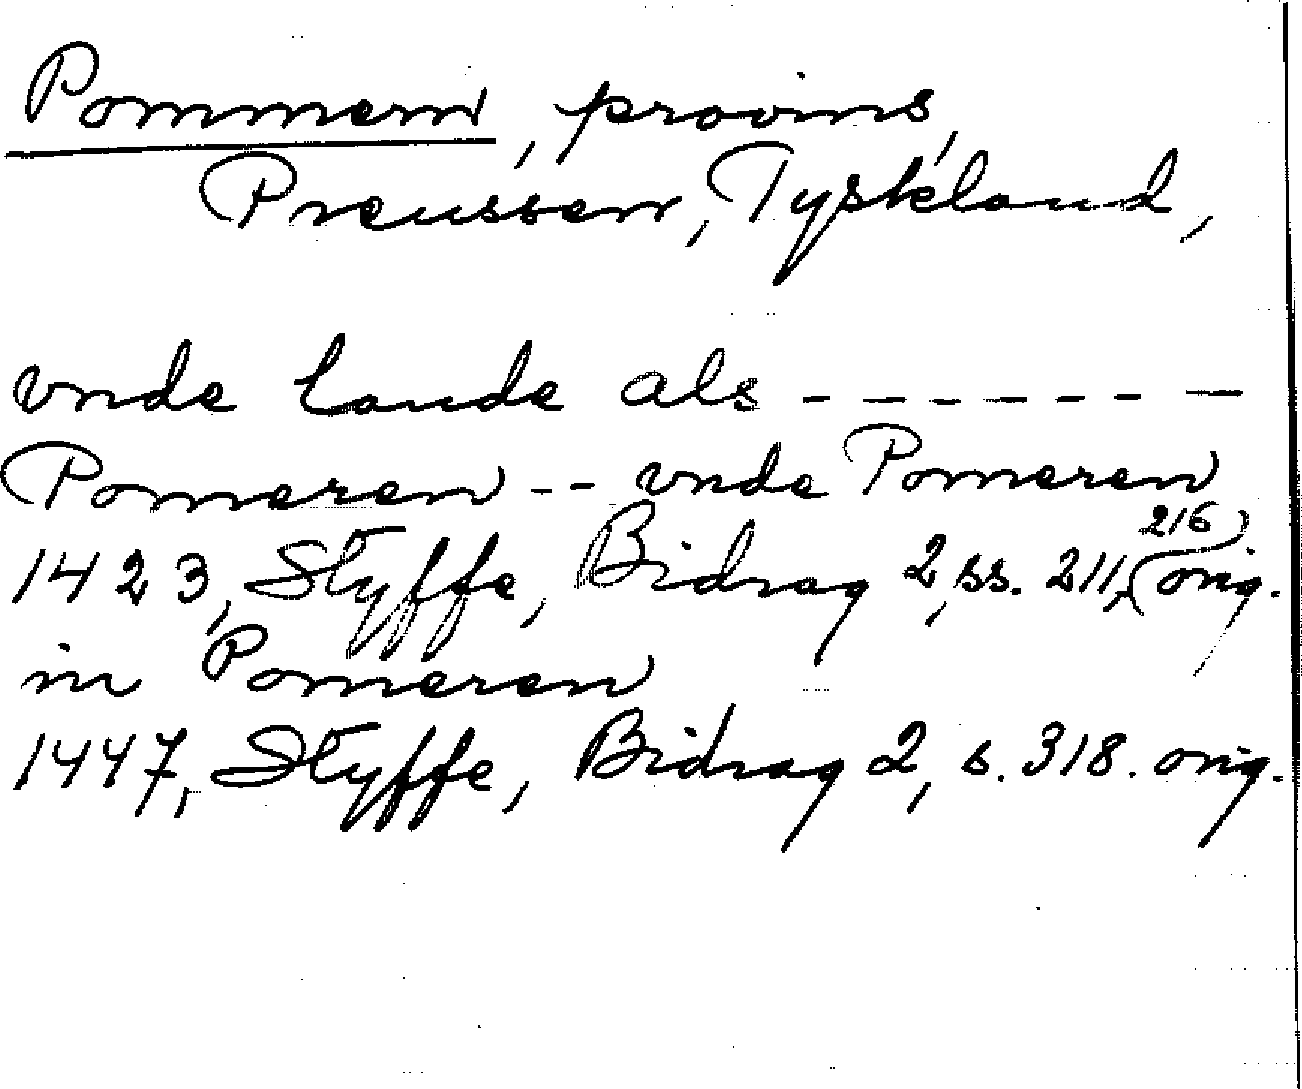 Pommern, provins,
Preussen, Tyskland,
vnde lande als - - - - - - -
Pomeren - - vnde Pomeren
1423, Styffe, Bidrag 2, ss. 211, 216 orig.
in Pomeren
1447, Styffe, Bidrag 2, s. 318. orig.